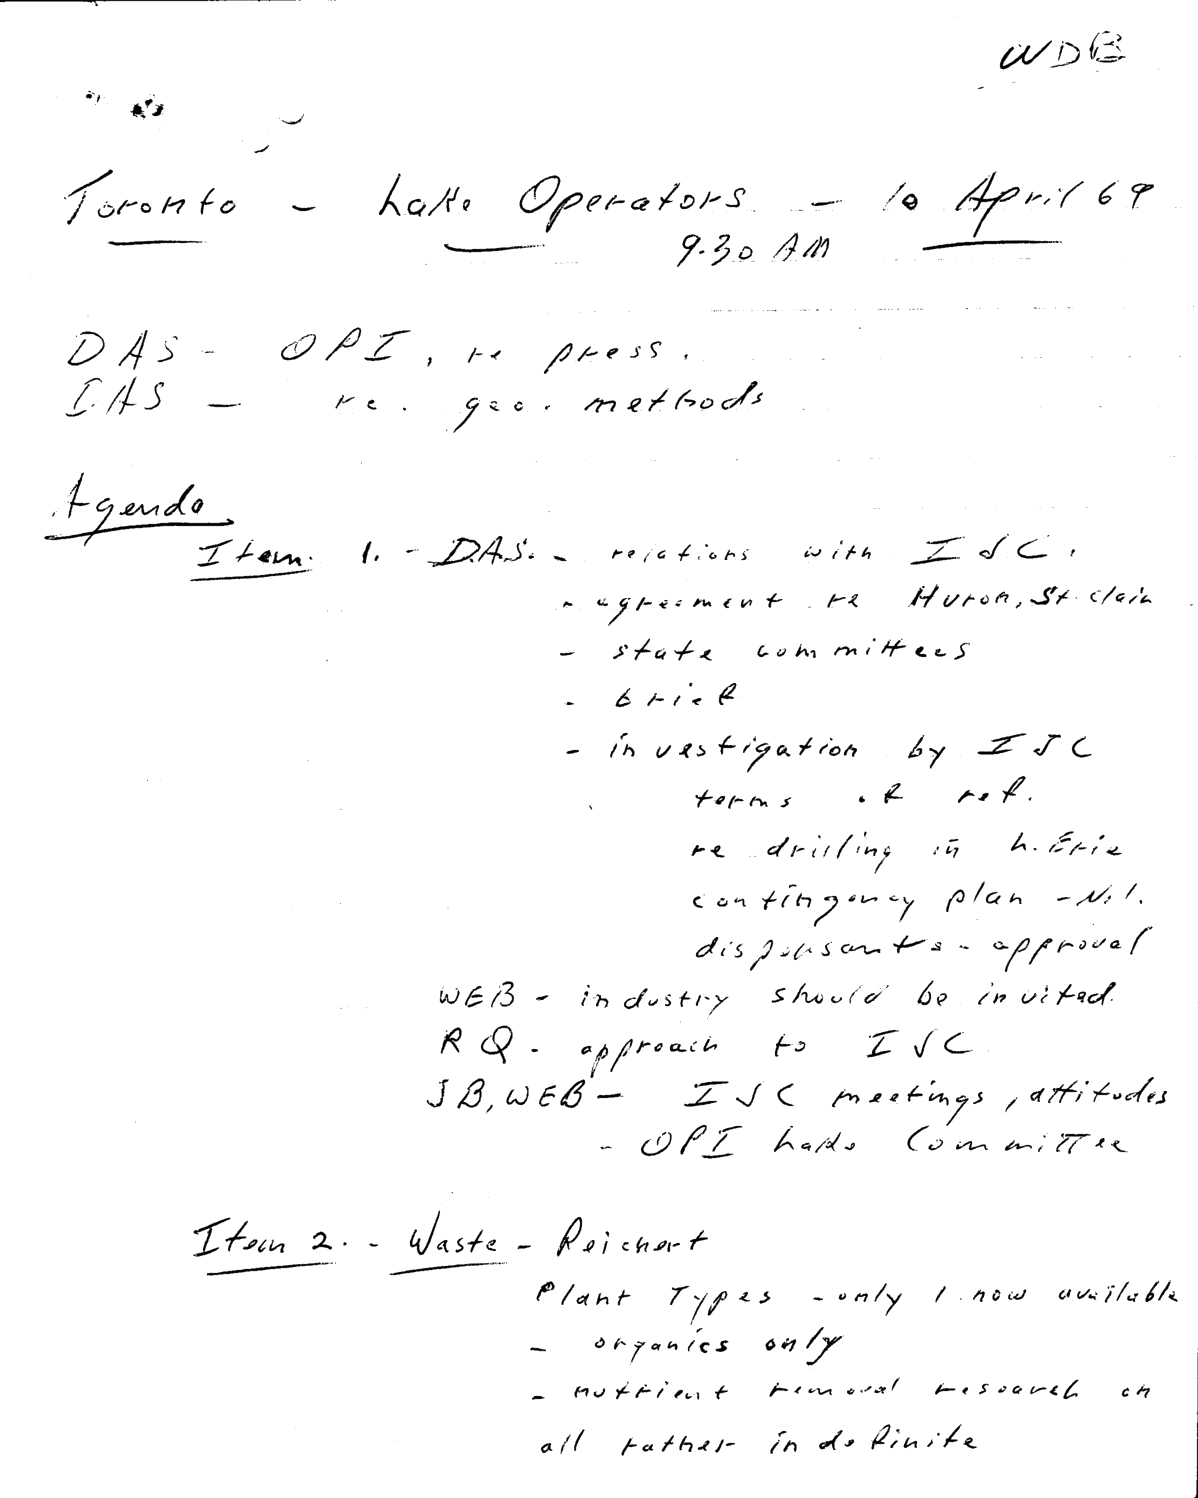 WDB
Toronto - Lake Operators - 10 April 69
9.30 AM
DAS - OPI, re press.
I.AS - re. geo. methods
Agenda
Item. 1. - D.A.S. - relations with IJC.
- agreement re Huron, St. Clair
- state committees
- brief
- investigation by IJC
terms of ref.
re drilling in L. Erie
contingency plan - Nil.
dispersants - approval
WEB - industry should be invited.
RQ - approach to IJC
JB, WEB - IJC meetings, attitudes
- OPI Lake Committee
Item 2. - Waste - Reichert
Plant Types - only 1 now available
- organics only
- nutrient removal research on
all rather indefinite